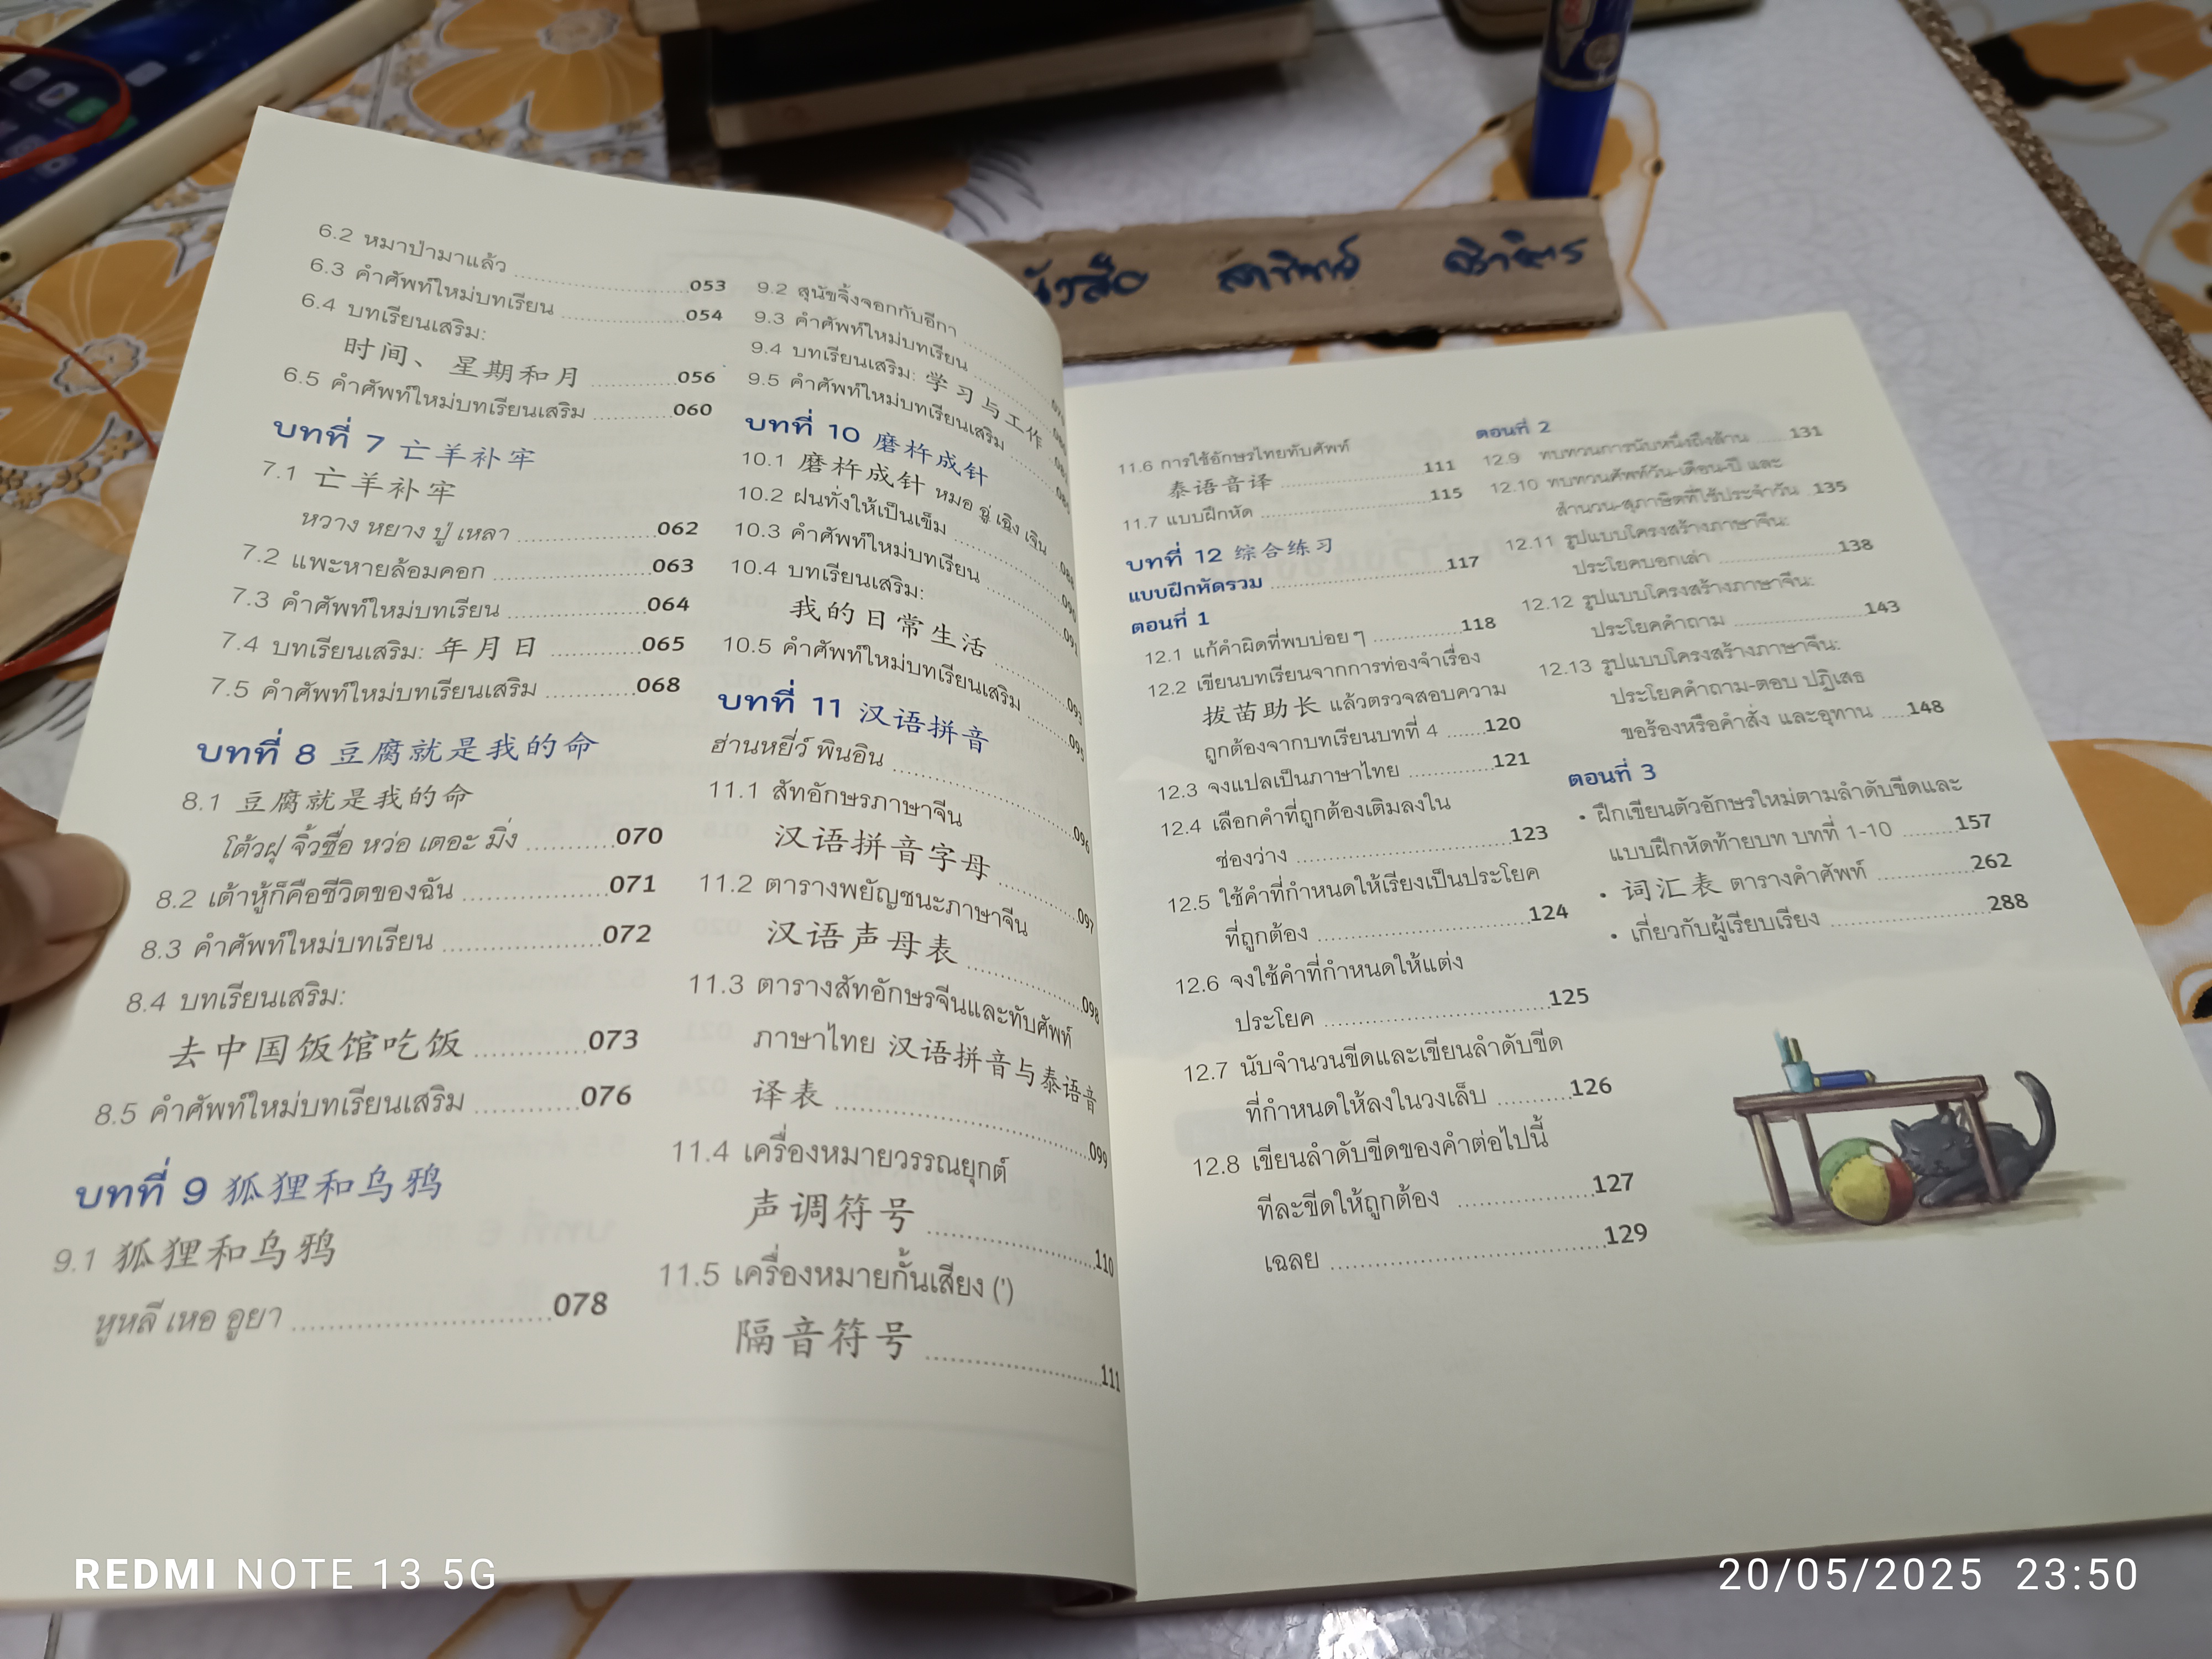 6.2 หมาป่ามาแล้ว ........ 053
6.3 คำศัพท์ใหม่บทเรียน ........ 054
6.4 บทเรียนเสริม:
时间、星期和月 ........ 056
6.5 คำศัพท์ใหม่บทเรียนเสริม ........ 060
บทที่ 7 亡羊补牢
7.1 亡羊补牢
หวาง หยาง ปู่ เหลา ........ 062
7.2 แพะหายล้อมคอก ........ 063
7.3 คำศัพท์ใหม่บทเรียน ........ 064
7.4 บทเรียนเสริม: 年月日 ........ 065
7.5 คำศัพท์ใหม่บทเรียนเสริม ........ 068
บทที่ 8 豆腐就是我的命
8.1 豆腐就是我的命
โต้วฝุ จิ้วชื่อ หว่อ เตอะ มิ่ง ........ 070
8.2 เต้าหู้ก็คือชีวิตของฉัน ........ 071
8.3 คำศัพท์ใหม่บทเรียน ........ 072
8.4 บทเรียนเสริม:
去中国饭馆吃饭 ........ 073
8.5 คำศัพท์ใหม่บทเรียนเสริม ........ 076
บทที่ 9 狐狸和乌鸦
9.1 狐狸和乌鸦
หูหลี เหอ อูยา ........ 078
9.2 สุนัขจิ้งจอกกับอีกา
9.3 คำศัพท์ใหม่บทเรียน
9.4 บทเรียนเสริม: 学习与工作
9.5 คำศัพท์ใหม่บทเรียนเสริม
บทที่ 10 磨杵成针
10.1 磨杵成针 หมอ ฉู่ เฉิง เจิน
10.2 ฝนทั่งให้เป็นเข็ม
10.3 คำศัพท์ใหม่บทเรียน
10.4 บทเรียนเสริม:
我的日常生活
10.5 คำศัพท์ใหม่บทเรียนเสริม
บทที่ 11 汉语拼音
ฮ่านหยี่ว์ พินอิน ........ 096
11.1 สัทอักษรภาษาจีน
汉语拼音字母 ........ 097
11.2 ตารางพยัญชนะภาษาจีน
汉语声母表 ........ 098
11.3 ตารางสัทอักษรจีนและทับศัพท์
ภาษาไทย 汉语拼音与泰语音
译表 ........ 099
11.4 เครื่องหมายวรรณยุกต์
声调符号 ........ 110
11.5 เครื่องหมายกั้นเสียง (')
隔音符号 ........ 111
11.6 การใช้อักษรไทยทับศัพท์
泰语音译 ........ 111
11.7 แบบฝึกหัด ........ 115
บทที่ 12 综合练习
แบบฝึกหัดรวม ........ 117
ตอนที่ 1
12.1 แก้คำผิดที่พบบ่อยๆ ........ 118
12.2 เขียนบทเรียนจากการท่องจำเรื่อง
拔苗助长 แล้วตรวจสอบความ
ถูกต้องจากบทเรียนบทที่ 4 ........ 120
12.3 จงแปลเป็นภาษาไทย ........ 121
12.4 เลือกคำที่ถูกต้องเติมลงใน
ช่องว่าง ........ 123
12.5 ใช้คำที่กำหนดให้เรียงเป็นประโยค
ที่ถูกต้อง ........ 124
12.6 จงใช้คำที่กำหนดให้แต่ง
ประโยค ........ 125
12.7 นับจำนวนขีดและเขียนลำดับขีด
ที่กำหนดให้ลงในวงเล็บ ........ 126
12.8 เขียนลำดับขีดของคำต่อไปนี้
ทีละขีดให้ถูกต้อง ........ 127
เฉลย ........ 129
ตอนที่ 2
12.9 ทบทวนการนับหนึ่งถึงล้าน ........ 131
12.10 ทบทวนศัพท์วัน-เดือน-ปี และ
สำนวน-สุภาษิตที่ใช้ประจำวัน 135
12.11 รูปแบบโครงสร้างภาษาจีน:
ประโยคบอกเล่า ........ 138
12.12 รูปแบบโครงสร้างภาษาจีน:
ประโยคคำถาม ........ 143
12.13 รูปแบบโครงสร้างภาษาจีน:
ประโยคคำถาม-ตอบ ปฏิเสธ
ขอร้องหรือคำสั่ง และอุทาน ........ 148
ตอนที่ 3
• ฝึกเขียนตัวอักษรใหม่ตามลำดับขีดและ
แบบฝึกหัดท้ายบท บทที่ 1-10 ........ 157
• 词汇表 ตารางคำศัพท์ ........ 262
• เกี่ยวกับผู้เรียบเรียง ........ 288
REDMI NOTE 13 5G
20/05/2025 23:50